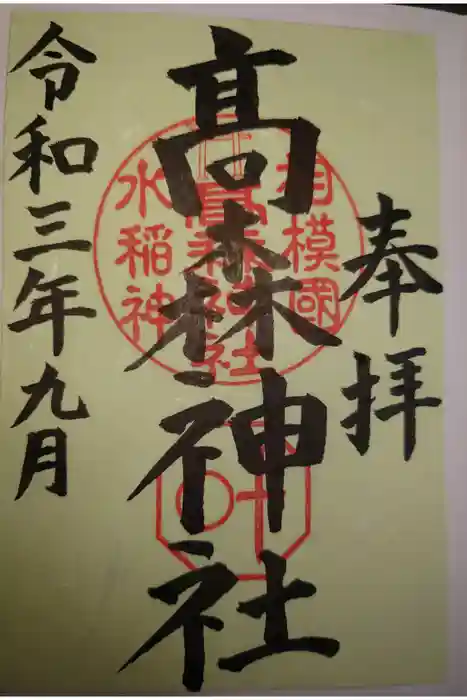 奉拝
髙森神社
令和三年九月
相模國
髙森神社
水稲神